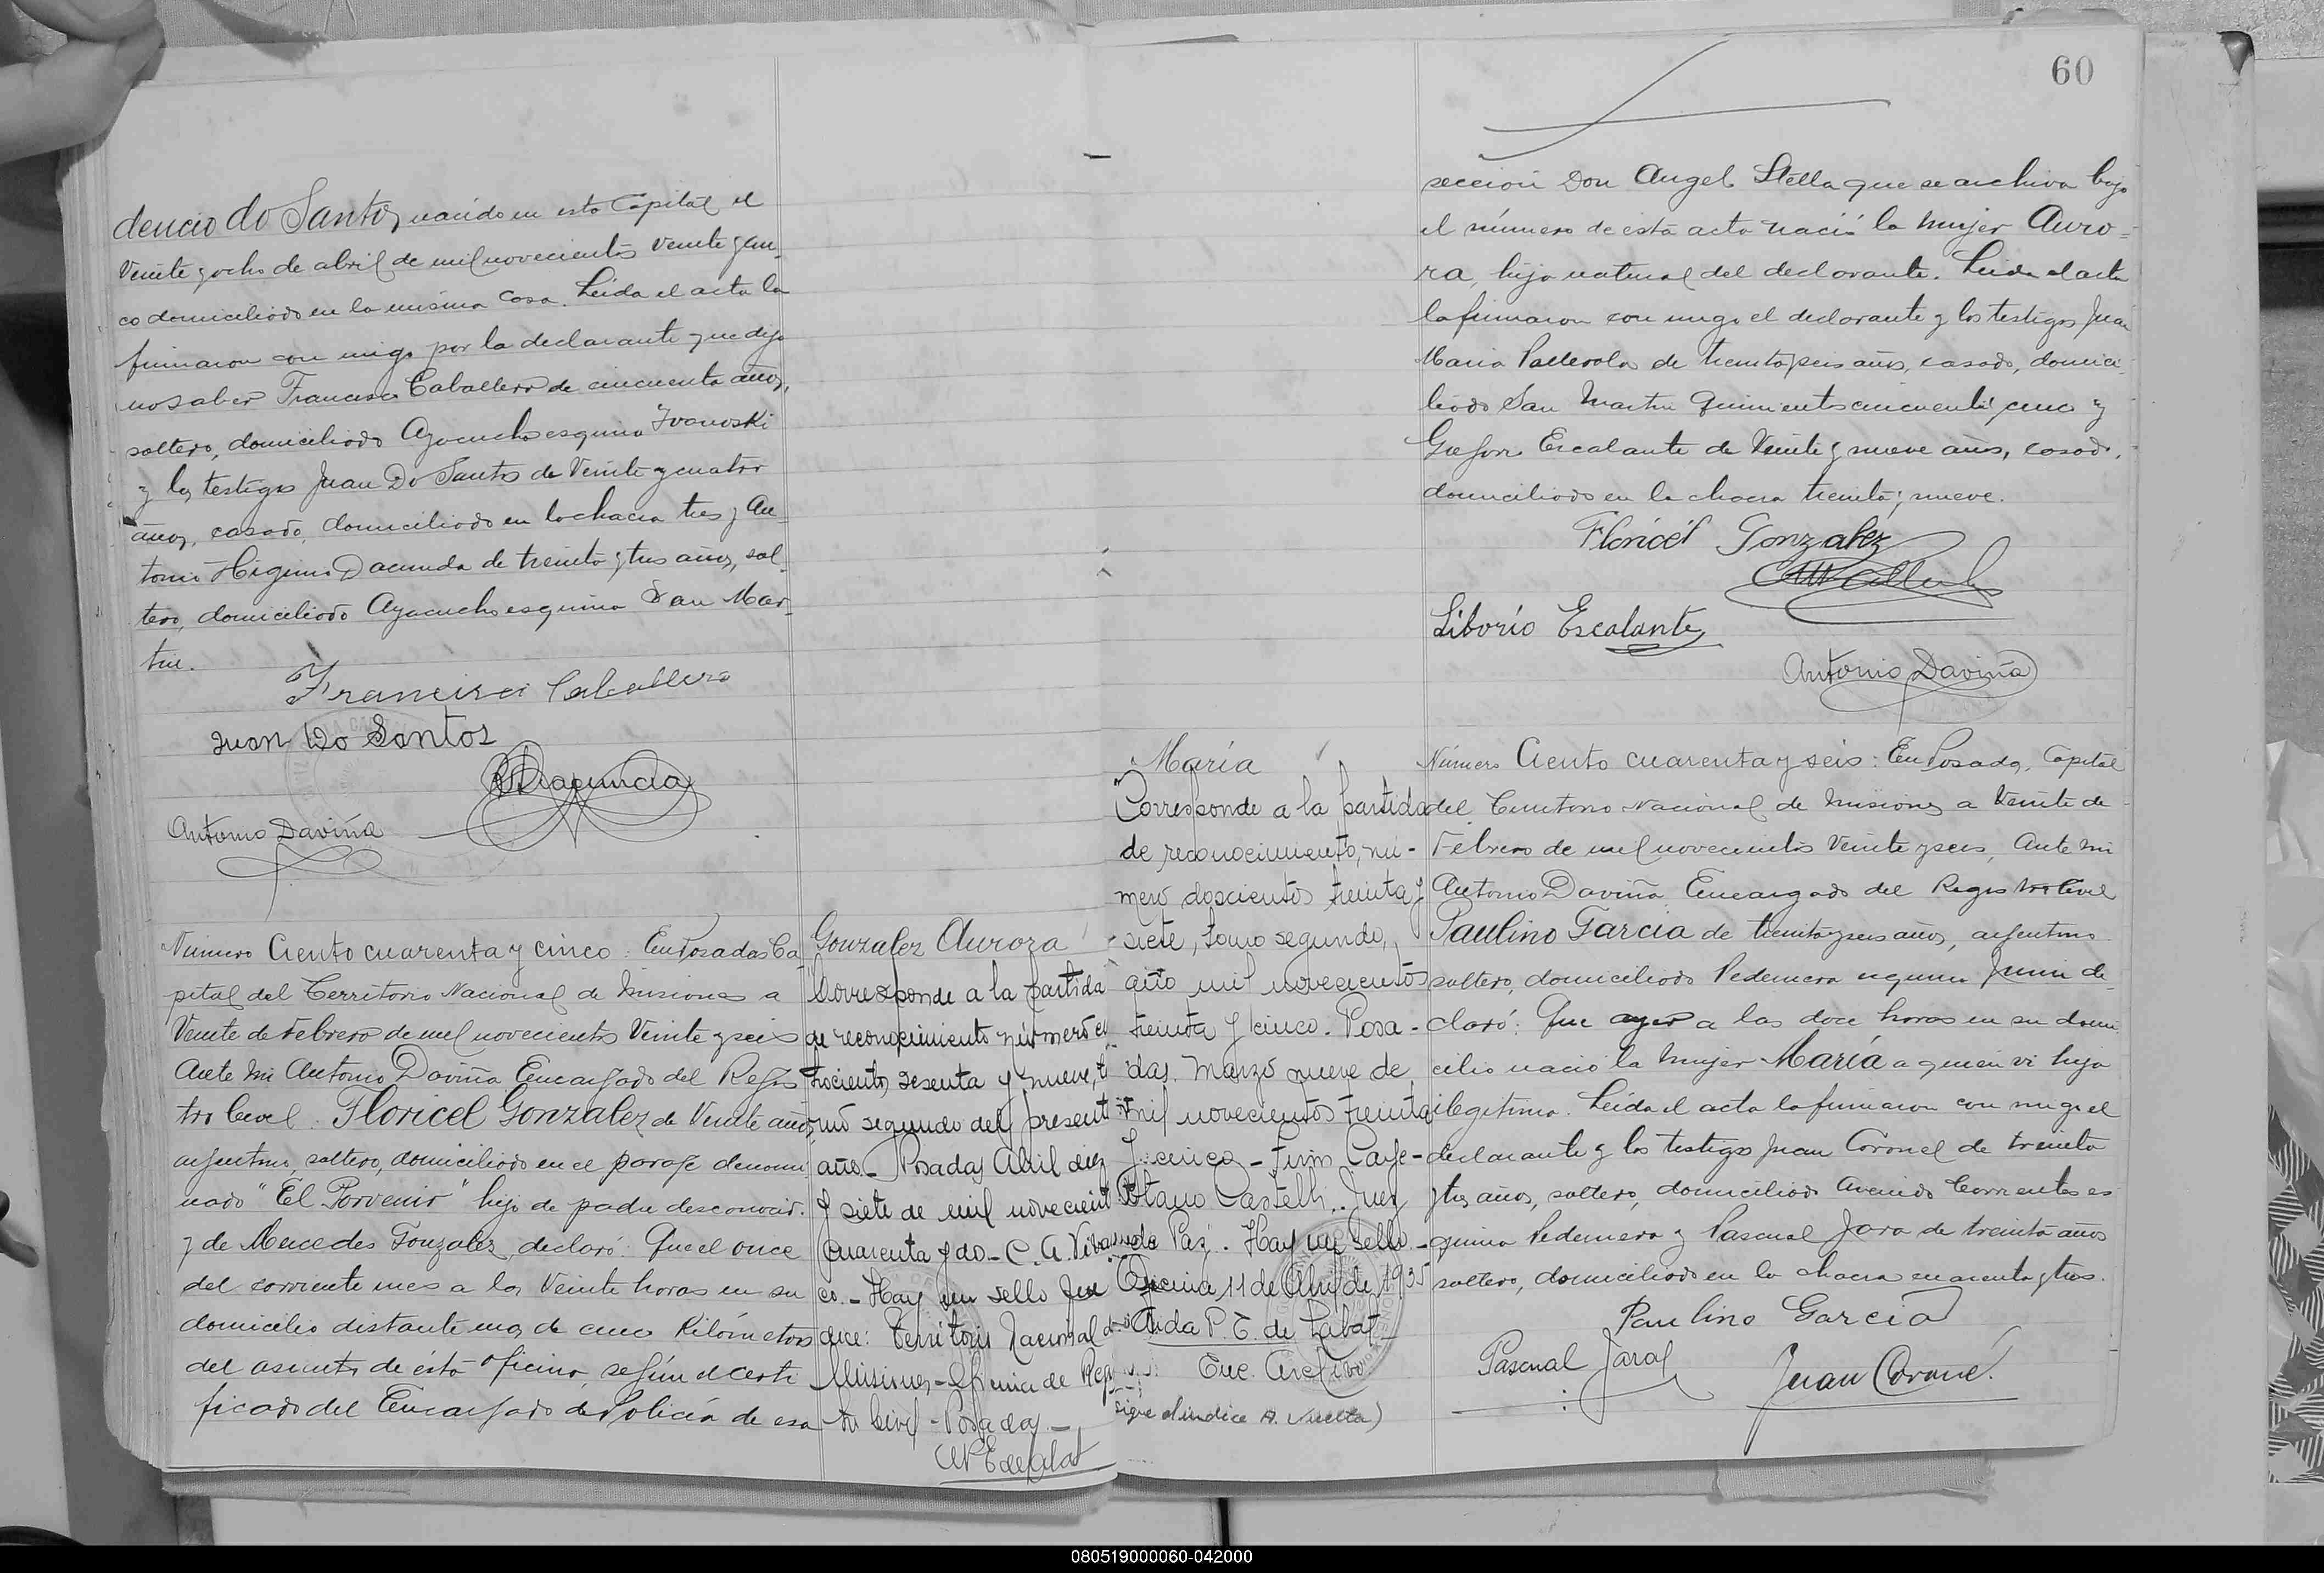 dencio do Santos, nacido en esta Capital el
Veinte y ocho de abril de mil novecientos Veinte y cin-
co domiciliado en la misma casa. Leida el acta la
firmaron con migo por la declarante que dijo
no saber Francisco Caballero de cincuenta años,
soltero, domiciliado Ayacucho esquina Ivanoski
y los testigos Juan Do Santos de Veinte y cuatro
años, casado, domiciliado en la chacra tres y An-
tonio Higinio Dacunda de treinta y tres años, sol-
tero, domiciliado Ayacucho esquina San Mar-
tin.
Francisco Caballero
Juan Do Santos
Antonio Daviña
Número Ciento cuarenta y cinco: En Posadas Ca-
pital del Territorio Nacional de Misiones a
Veinte de Febrero de mil novecientos Veinte y seis
Ante mi Antonio Daviña Encargado del Regis-
tro Civil. Floricel Gonzalez de Veinte años,
argentino, soltero, domiciliado en el paraje denomi-
nado "El Porvenir" hijo de padre desconocido
y de Mercedes Gonzalez, declaró: Que el once
del corriente mes a las Veinte horas en su
domicilio distante mas de cinco Kilómetros
del asiento de ésta oficina, según el certi-
ficado del Encargado de Policía de esa
Gonzalez Aurora
Corresponde a la partida
de reconocimiento número
trocientos sesenta y nueve, to
mo segundo del present
año - Posadas Abril diez
y siete de mil novecient
cuarenta y do - C. A.
co. - Hay un sello que
dice: Territorio Nacional de
Misiones - Oficina de Regis
tro Civil - Posadas -
60
sección Don Angel Stella que se archiva bajo
el número de esta acta nació la mujer Auro-
ra, hija natural del declarante. Leida el acta
la firmaron con migo el declarante y los testigos Juan
Maria Pallerola de treinta y seis años, casado, domici-
liado San Martin quinientos cincuenta y cinco y
Escalante de Veinte y nueve años, casado,
domiciliado en la chacra treinta y nueve.
Floricel Gonzalez
Liborio Escalante
Antonio Daviña
María
"Corresponde a la partida
de reconocimiento, nú-
mero doscientos treinta y
siete, tomo segundo,
año mil novecientos
treinta y cinco. Posa-
das. Marzo nueve de
mil novecientos treinta
y cinco - Firm. Caye-
tano Castelli. Juez
de Paz. Hay un sello -
Oficina 11 de Abr de 1935
Aida P. E. de Labat
Enc. Archivo
sigue el indice A. Vuelta)
Número Ciento cuarenta y seis: En Posadas, Capital
del Territorio Nacional de Misiones a Veinte de
Febrero de mil novecientos Veinte y seis, Ante mi
Antonio Daviña Encargado del Registro Civil
Paulino Garcia de treinta y seis años, argentino
soltero, domiciliado Pedernera esquina Junin de-
claró: Que ayer a las doce horas en su domi-
cilio nació la mujer María a quien vi hija
ilegitima. Leida el acta la firmaron con migo el
declarante y los testigos Juan Coronel de treinta
y tres años, soltero, domiciliado Avenida Corrientes es-
quina Pedernera y Pascual Jara de treinta años
soltero, domiciliado en la chacra cuarenta y tres.
Paulino Garcia
Pascual Jara
Juan Coronel
080519000060-042000